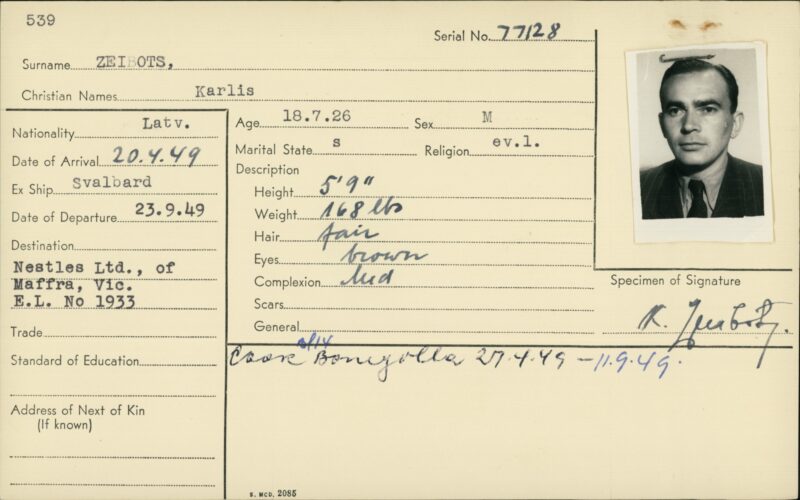 539
Serial No. 77128
Surname ZEIBOTS,
Christian Names Karlis
Nationality Latv.
Date of Arrival 20.4.49
Ex Ship Svalbard
Date of Departure 23.9.49
Destination
Nestles Ltd., of
Maffra, Vic.
E.L. No 1933
Trade
Standard of Education
Address of Next of Kin
(If known)
Age 18.7.26 Sex M
Marital State s Religion ev.l.
Description
Height 5'9"
Weight 168 lbs
Hair fair
Eyes brown
Complexion Med
Scars
General
Specimen of Signature
K. Zeibots.
Cook Bonegilla 27.4.49 – 11.9.49.
S. MCD. 2085